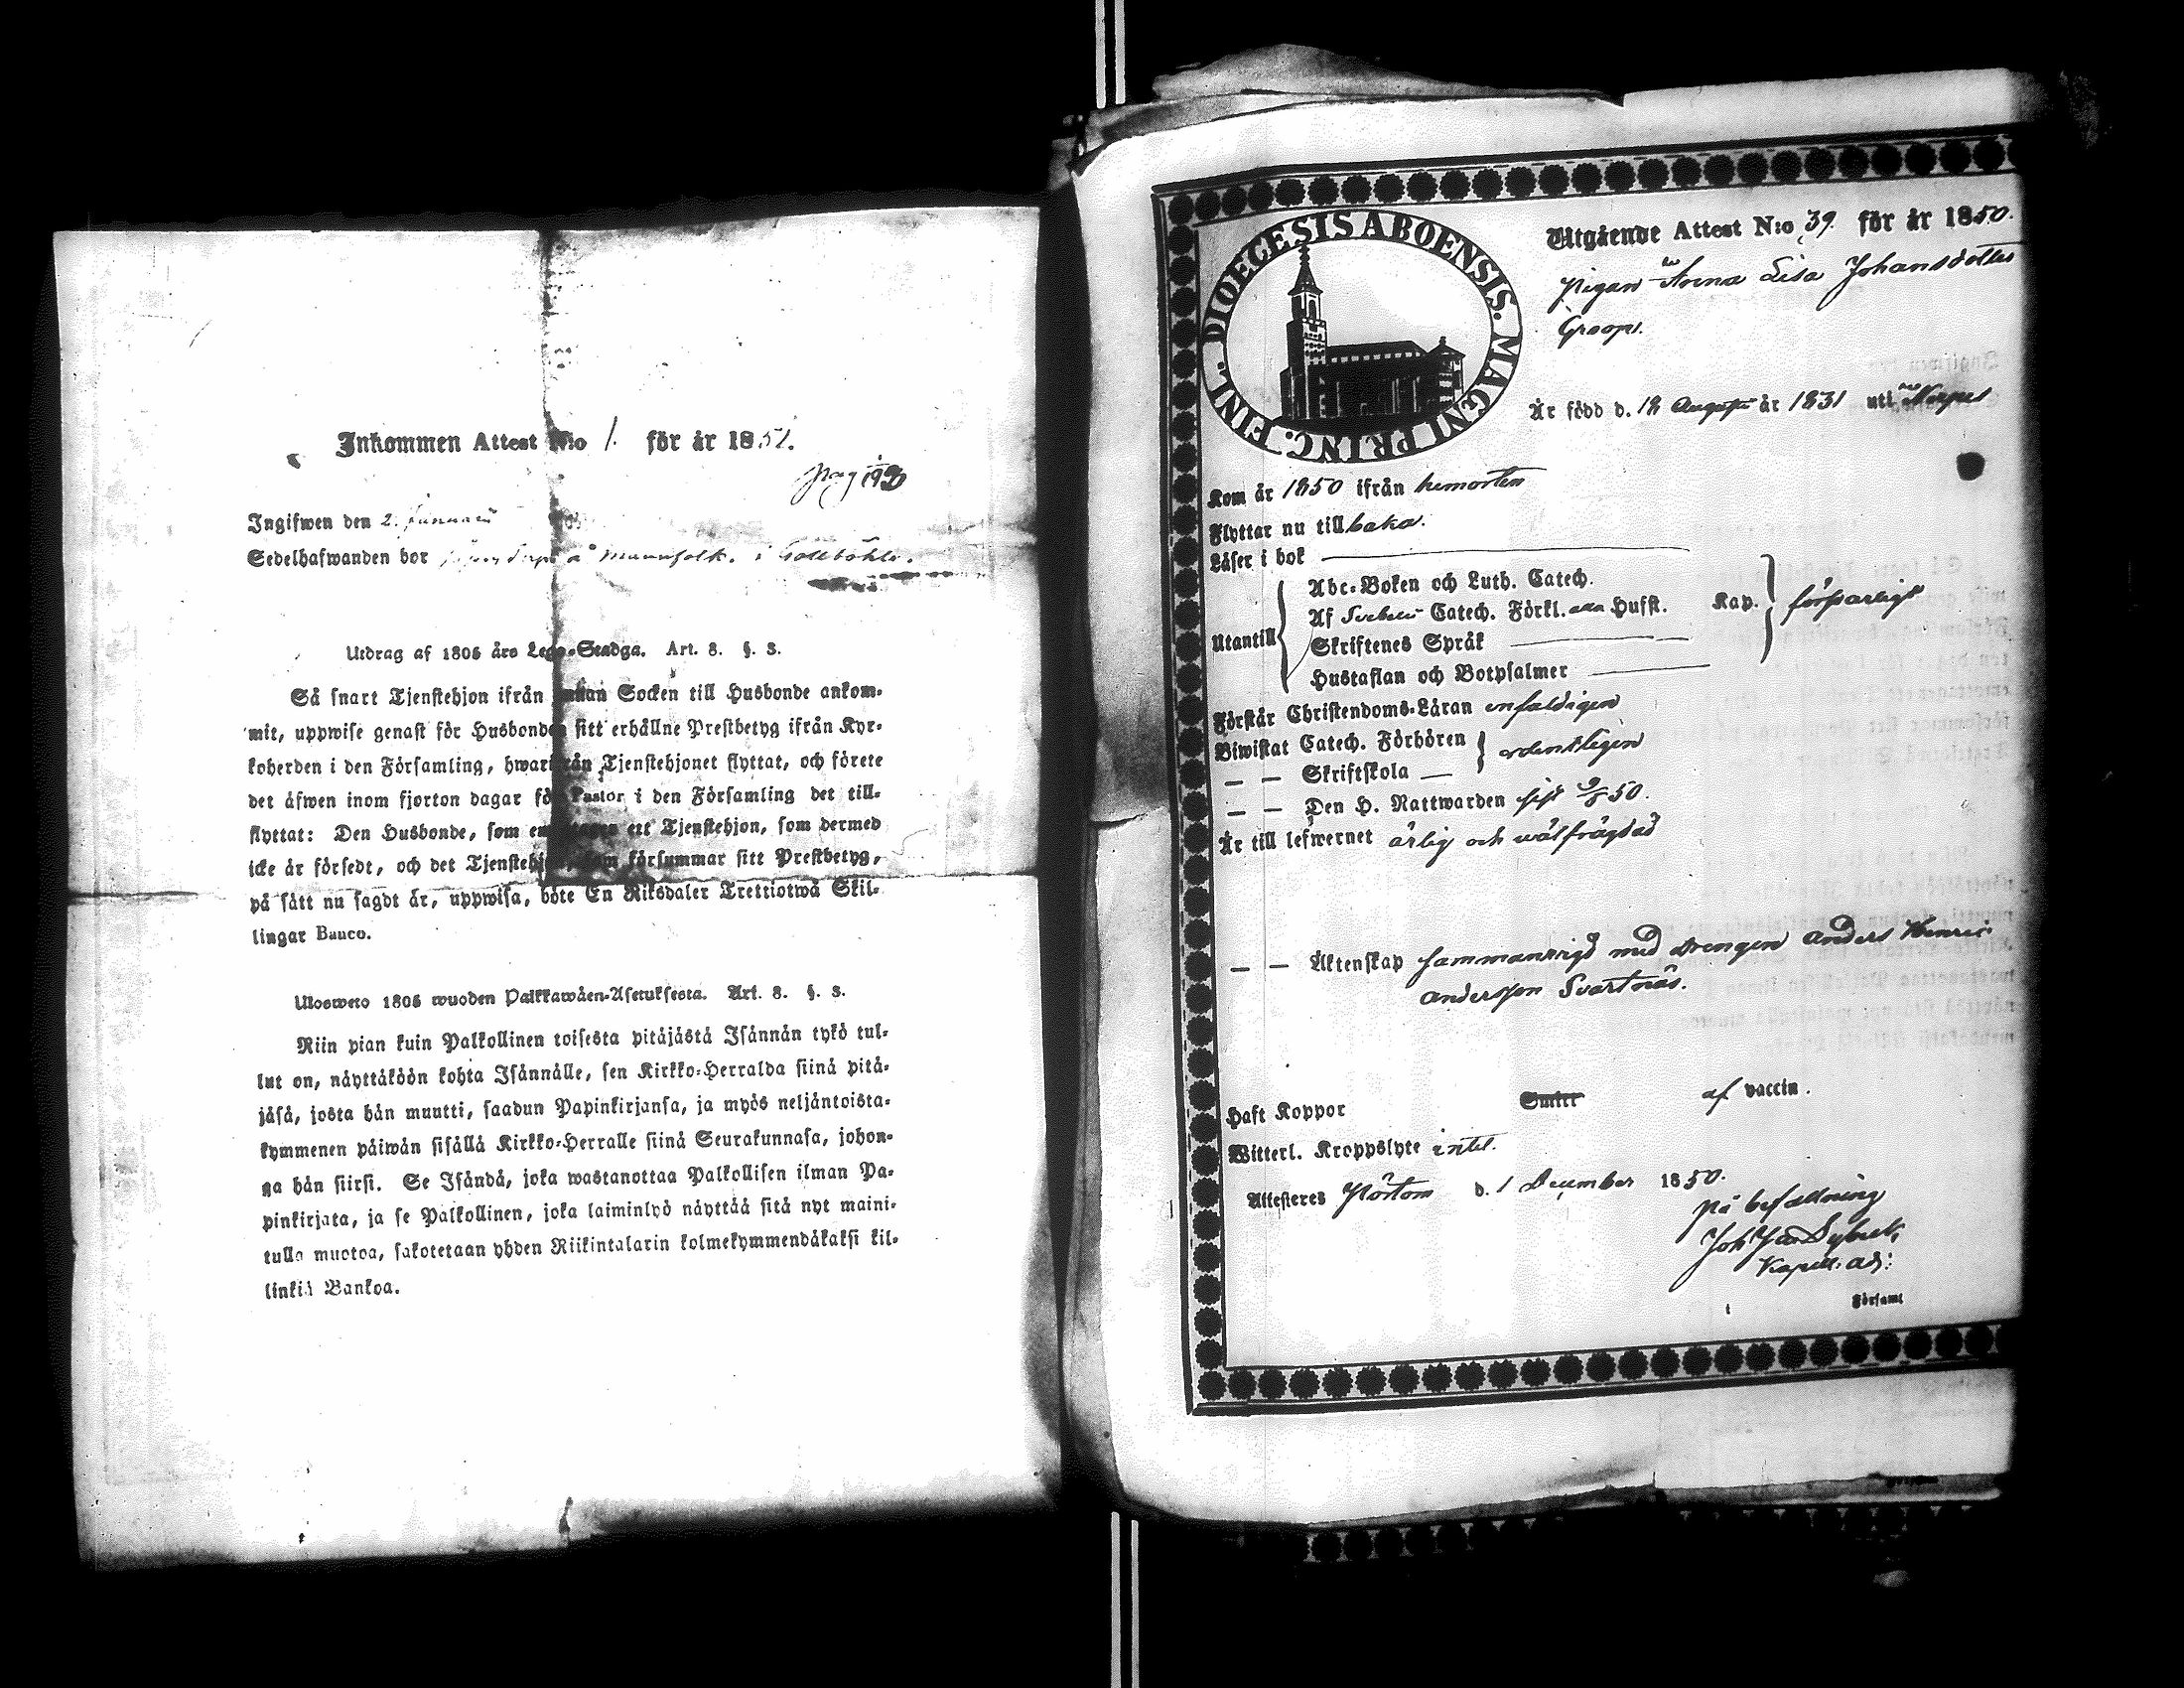 Inkommen Attest N:o 1. för år 1851.
pag 193
Ingifwen den 2. Januari
Sedelhafwanden bor å Munnfolk. i
Utdrag af 1805 års Lego-Stadga. Art. 8. §. 3.
Så snart Tjenstehjon ifrån annan Socken till Husbonde ankom-
mit, uppwise genast för Husbonden sitt erhållne Prestbetyg ifrån Kyr-
koherden i den Församling, hwarifrån Tjenstehjonet flyttat, och förete
det äfwen inom fjorton dagar för Pastor i den Församling det till-
flyttat: Den Husbonde, som ett Tjenstehjon, som dermed
icke är försedt, och det Tjenstehjon, som försummar sitt Prestbetyg,
på sätt nu sagdt är, uppwisa, böte En Riksdaler Trettiotwå Skil-
lingar Banco.
Ulosweto 1805 wuoden Palkkawäen-Asetuksesta. Art. 8. §. 3.
Niin pian kuin Palkollinen toisesta pitäjästä Isännän tykö tul-
lut on, näyttäköön kohta Isännälle, sen Kirkko-Herralda siinä pitä-
jäsä, josta hän muutti, saadun Papinkirjansa, ja myös neljäntoista-
kymmenen päiwän sisällä Kirkko-Herralle siinä Seurakunnasa, johon-
ga hän siirsi. Se Isändä, joka wastanottaa Palkollisen ilman Pa-
pinkirjata, ja se Palkollinen, joka laiminlyö näyttää sitä nyt maini-
tulla muotoa, sakotetaan yhden Riikintalarin kolmekymmendäkaksi kil-
linkiä Bankoa.
DIOECESIS ABOENSIS. MAGNI PRINC. FINL.
Utgående Attest N:o 39. för år 1850.
Pigan Anna Lisa Johansdotter
Groops.
Är född d. 18 Augusti år 1831 uti Korpus
Kom år 1850 ifrån hemorten
Flyttar nu tillbaka.
Läser i bok
Abc-Boken och Luth. Catech.
Utantill Af Svebelii Catech. Förkl. Husst. Kap. försvarligt
Skriftenes Språk
Hustaflan och Botpsalmer
Förstår Christendoms-Läran enfaldigen
Biwistat Catech. Förhören ordentligen
— — Skriftskola —
— — Den H. Nattwarden sist 50.
Är till lefwernet ärlig och wälfrägdad
— — Äktenskap sammanvigd med drengen Anders Henric
Andersson Svartnäs.
Haft Koppor Smitt af vaccin.
Witterl. Kroppslyte intet.
Attesteres Pörtom d. 1 December 1850.
På befallning
Kapell: adj:
Församl